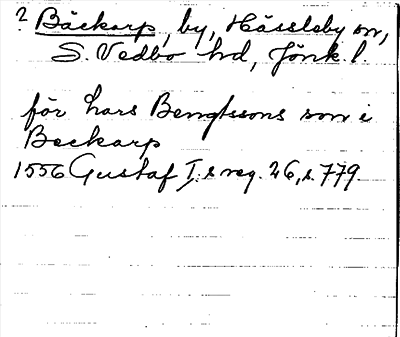 ? Bäckarp, by, Hässleby sn,
S. Vedbo hd, Jönk. l.
för Lars Bengtssons som i
Beckarp
1556 Gustaf I:s reg. 26, s. 779.